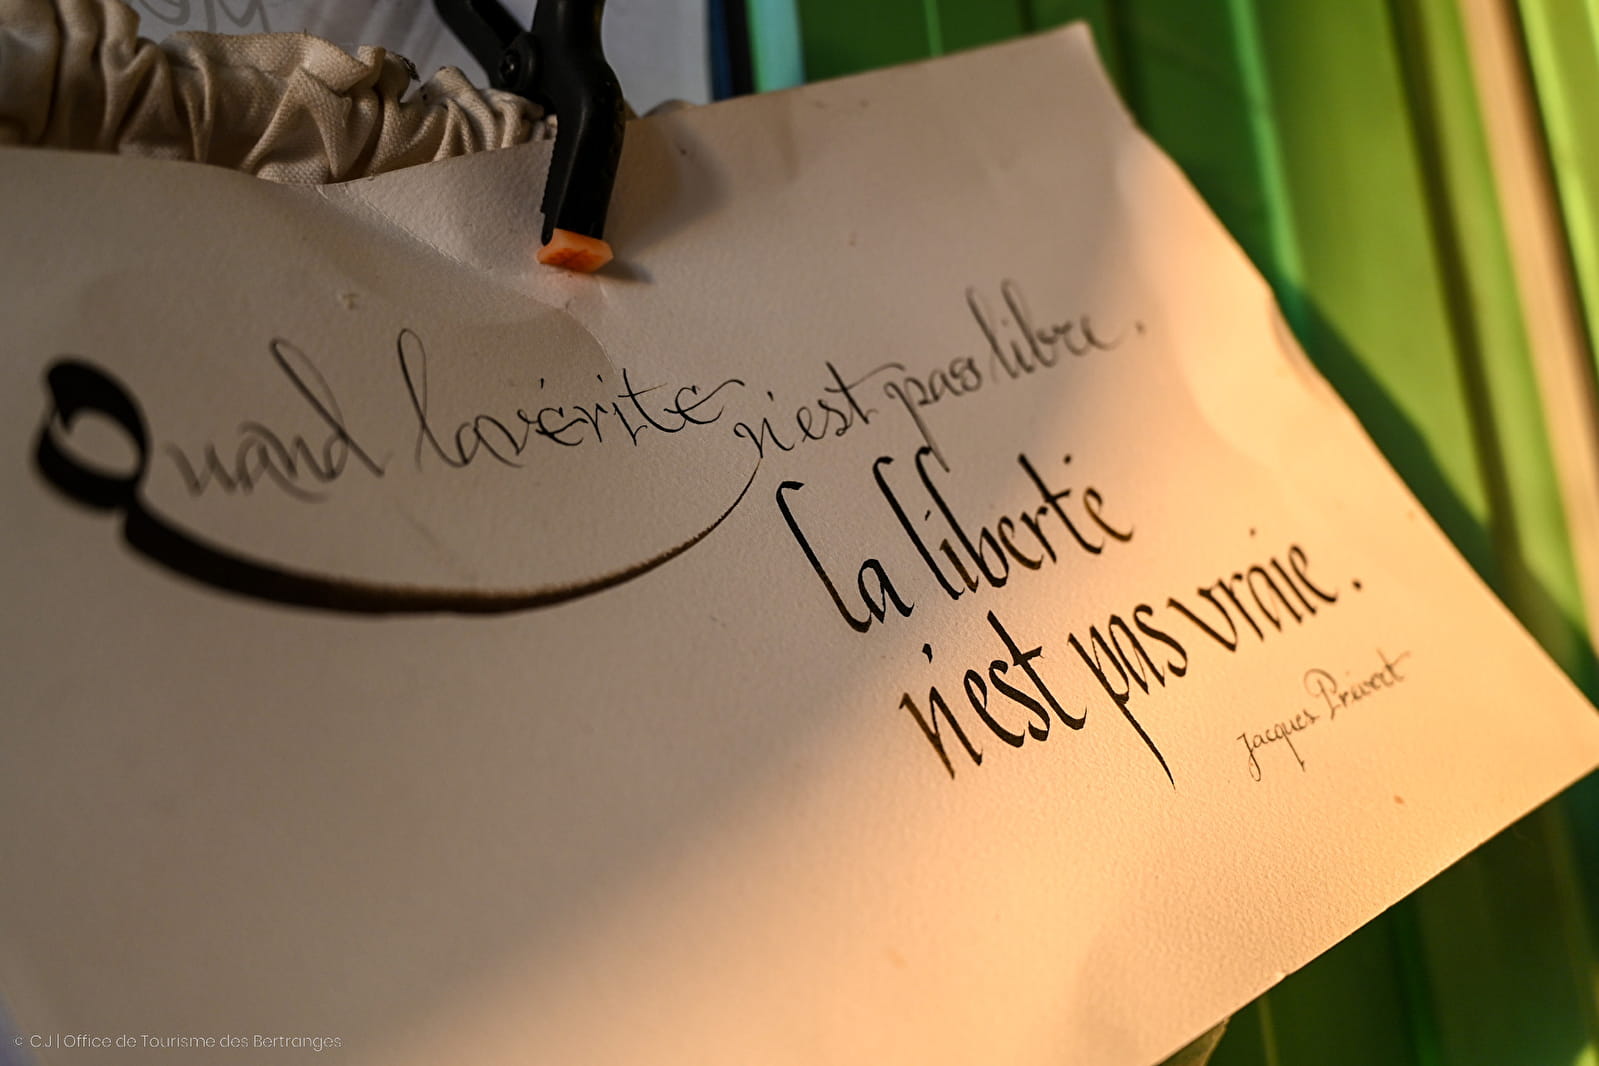 Quand la vérité n'est pas libre.
la liberté
n'est pas vraie.
Jacques Prévert
© C.J | Office de Tourisme des Bertranges